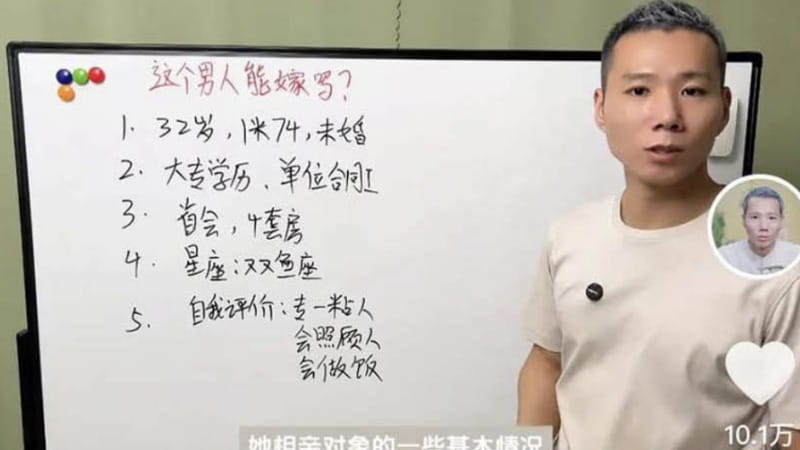 这个男人能嫁吗？
1. 32岁，1米74，未婚
2. 大专学历、单位合同工
3. 省会，4套房
4. 星座：双鱼座
5. 自我评价：专一粘人
会照顾人
会做饭
她相亲对象的一些基本情况
10.1万